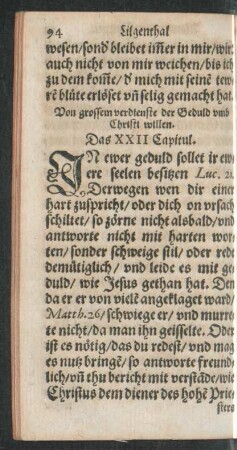 94 Lilgenthal
wesen/sond̕ bleibet im̃er in mir/wirt
auch nicht von mir weichen/bis ich
zu dem kom̃e/d̕ mich mit seinē tew⸗
rē blüte erlöset vñ selig gemacht hat.
Von grossem verdienste der Geduld vmb
Christi willen.
Das XXII Capitul.
IN ewer geduld sollet ir ew⸗
ere seelen besitzen Luc. 21.
Derwegen wen dir einer
hart zuspricht/ oder dich on vrsach
schiltet/ so zörne nicht alsbald/ vnd
antworte nicht mit harten wor⸗
ten/ sonder schweige stil/ oder rede
demütiglich/ vnd leide es mit ge⸗
duld/ wie Jesus gethan hat. Denn
da er er von vielē angeklaget ward/
Matth. 26/ schwiege er/ vnd murre⸗
te nicht/da man ihn geisselte. Oder
ist es nötig/das du redest/ vnd mag
es nutz bringē/ so antworte freund⸗
lich/vñ thu bericht mit verstāde/wie
Christus dem diener des hohē Prie⸗
sters